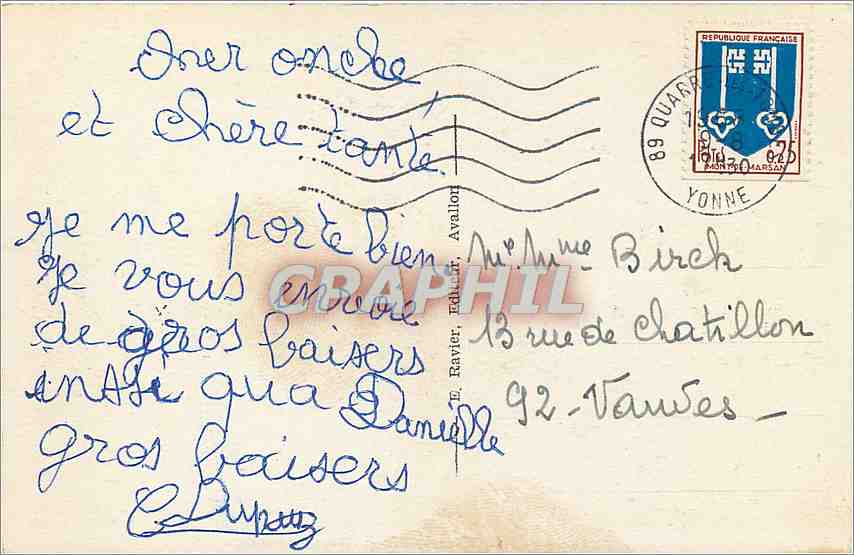 cher oncle
et chère tante
Je me porte bien
Je vous envoie
de gros baisers
insi qua Danielle
gros baisers
E. Ravier, Editeur, Avallon
Mr. Mme Birck
13 rue de Chatillon
92 - Vanves -
REPUBLIQUE FRANÇAISE
0,25
MONT-DE-MARSAN
89 QUARRE
YONNE
CPARPHIL